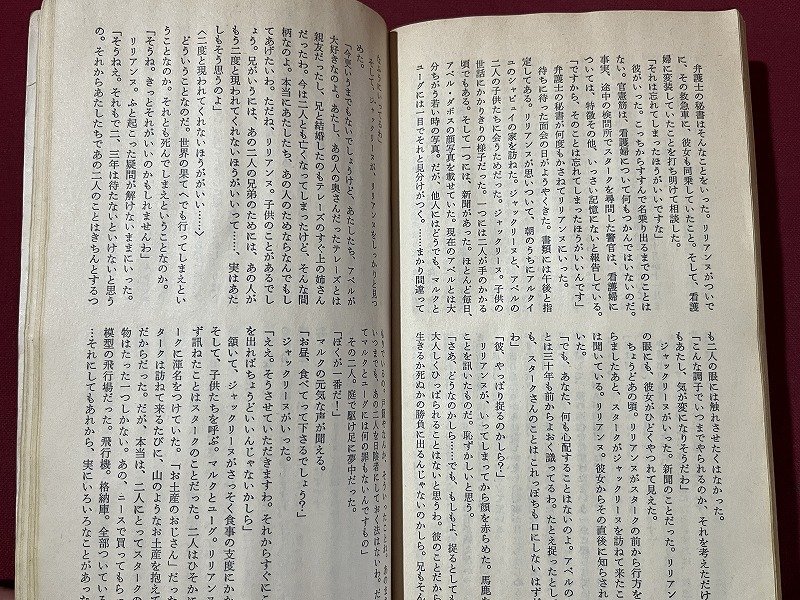 弁護士の秘書はそんなことをいった。リリアンヌがついで
に、その救急車に、彼女も同乗していたこと。そして、看護
婦に変装していたことを打ち明けて相談した。
「それは忘れてしまったほうがいいですな」
彼がいった。こっちからすすんで名乗り出るまでのことは
ない。官憲筋は、看護婦について何もつかんではいないのだ。
事実、途中の検問所でスタークを尋問した警官は、看護婦に
ついては、特徴その他、いっさい記憶にないと報告している。
「ですから、そのことは忘れてしまったほうがいいんです」
弁護士の秘書が何度もかさねてリリアンヌにいった。
待ちに待った面会の日がようやくきた。書類には午後と指
定してある。リリアンヌは思いついて、朝のうちにアルクイ
ユのシャピュイの家を訪ねた。ジャックリーヌと、アベルの
二人の子供たちに会うためだった。一つには二人が手のかかる
世話にかかりきりの様子だった。
頃でもある。そして一つには、新聞があった。ほとんど毎日、
アベル・ダボスの顔写真を載せていた。現在のアベルとは大
分ちがう若い時の写真。だが、他人にはどうでも、マルクと
ユーグには一目でそれと見分けがつく。……まかり間違って
も二人の眼には触れさせたくはなかった。
「こんな調子でいつまでやられるのか、それを考えただけ
もあたし、気が変になりそうだわ」
ジャックリーヌがいった。新聞のことだった。リリアン
の眼にも、彼女がひどくやつれて見えた。
ちょうどあの頃。リリアンヌがスタークの前から行方を
らましたあと、スタークがジャックリーヌを訪ねて来たこ
は聞いている。リリアンヌ、彼女からその直後に知らされ
いた。
「でも、あなた、何も心配することはないのよ。アベルの
とは三十年も前からよおく識ってるわ。たとえ捉ったとし
も、スタークさんのことはこれっぽちも口にしないはずだ
わ」
「彼、やっぱり捉るのかしら？」
リリアンヌが、いってしまってから顔を赤らめた。馬鹿な
ことを訊いたものだ。恥ずかしいと思う。
「さあ、どうなのかしら……でも、もしもよ、捉るとしても
大人しくつかまることはないと思うわ。彼のことだから
生きるか死ぬかの勝負に出るんじゃないのかしら。兄もそん
めた。
そして、ジャックリーヌが、リリアンヌをしっかりと見つ
「今更いうまでもないでしょうけど、あたしたち、アベルが
大好きなのよ。あたし、あの人の奥さんだったテレーズとは
親友だったし、兄と結婚したのもテレーズのすぐ上の姉さん
だったわ。今は二人とも亡くなってしまったけど、そんな間
柄なのよ。本当にあたしたち、あの人のためならなんでもし
てあげたいわ。ただね、リリアンヌ。子供のことがあるでし
ょう。兄がいうには、あの二人の兄弟のためには、あの人が
もう二度と現われてくれないほうがいいって……実はあた
しもそう思うのよ」
〈二度と現われてくれないほうがいい……〉
どういうことなのだ。世界の果てへでも行ってしまえとい
うことなのか。それとも死んでしまえということなのか。
「そうね。きっとそれがいいのかもしれませんわ」
リリアンヌ。ふと起こった疑問が解けないままにいった。
「そうねえ。それもで二、三年は待たないといけないと思う
の。それからあたしたちであの二人のことはきちんとするつ
いつまでも、あの二人を日陰者にしておく法はないわ。だっ
てマルクとユーグには何の罪もないんですもの」
その二人。庭で駆け足に夢中だった。
「ぼくが一番だ！」
マルクの元気な声が聞える。
「お昼、食べてって下さるでしょう？」
ジャックリーヌがいった。
「ええ。そうさせていただきますわ。それからすぐに
を出ればちょうどいいんじゃないかしら」
頷いて、ジャックリーヌがさっそく食事の支度にかか
そして、子供たちを呼ぶ。マルクとユーグ。リリアン
ず訊ねたことはスタークのことだった。二人はひそかに
ークに渾名をつけていた。「お土産のおじさん」だった
タークは訪ねて来るたびに、山のようなお土産を抱えて
だからだった。だが、本当は、二人にとってスタークの
物はたった一つしかない。あの、ニースで買ってもらっ
模型の飛行場だった。飛行機。格納庫。全部ついている
…それにしてもあれから、実にいろいろなことがあった